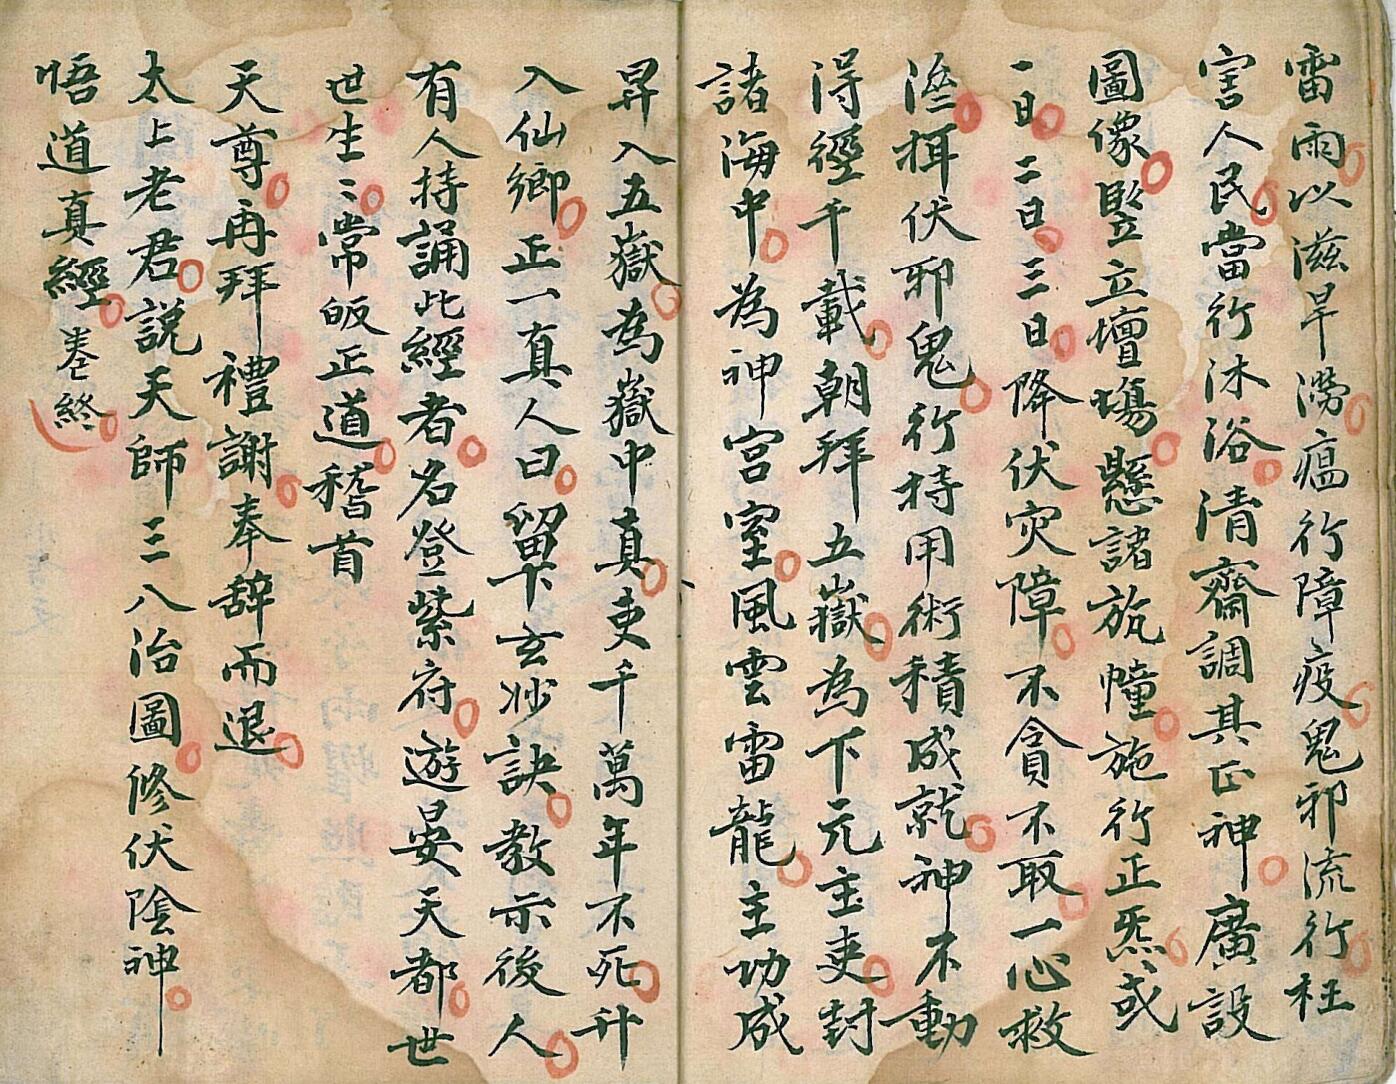 雷雨以滋旱澇瘟行障疫鬼邪流行枉
害人民當行沐浴清齋調其正神廣設
圖像竪立壇場懸諸旂幢施行正炁或
一日二日三日降伏灾障不貪不取一心救
濟揖伏邪鬼行持用術積成就神不動
得經千載朝拜五嶽為下元主吏封
諸海中為神宮室風雲雷龍主功成
昇入五嶽為嶽中真吏千萬年不死升
入仙鄉正一真人曰留下玄妙訣教示後人
有人持誦此經者名登紫府遊晏天都世
世生〻常皈正道稽首
天尊再拜禮謝奉辞而退
太上老君說天師三八治圖修伏陰神
悟道真經卷終